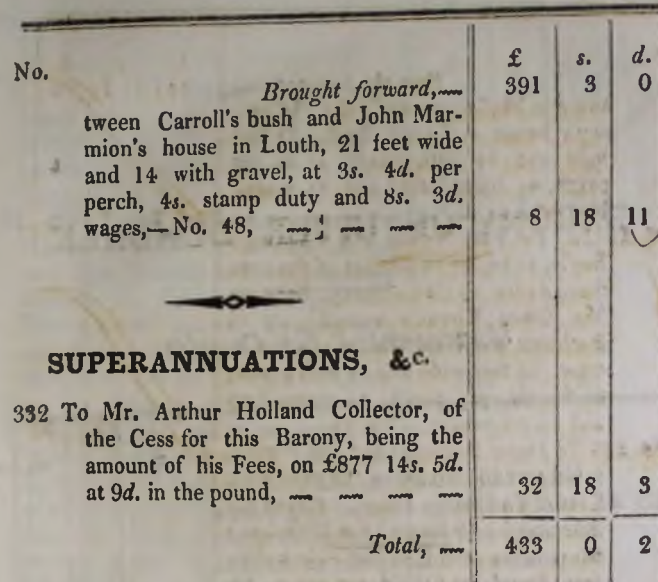 £ s. d.
No.
Brought forward,— 391 3 0
tween Carroll's bush and John Mar-
mion's house in Louth, 21 feet wide
and 14 with gravel, at 3s. 4d. per
perch, 4s. stamp duty and 8s. 3d.
wages,—No. 48, — — — — 8 18 11
SUPERANNUATIONS, &c.
332 To Mr. Arthur Holland Collector, of
the Cess for this Barony, being the
amount of his Fees, on £877 14s. 5d.
at 9d. in the pound, — — — — 32 18 3
Total, — 433 0 2